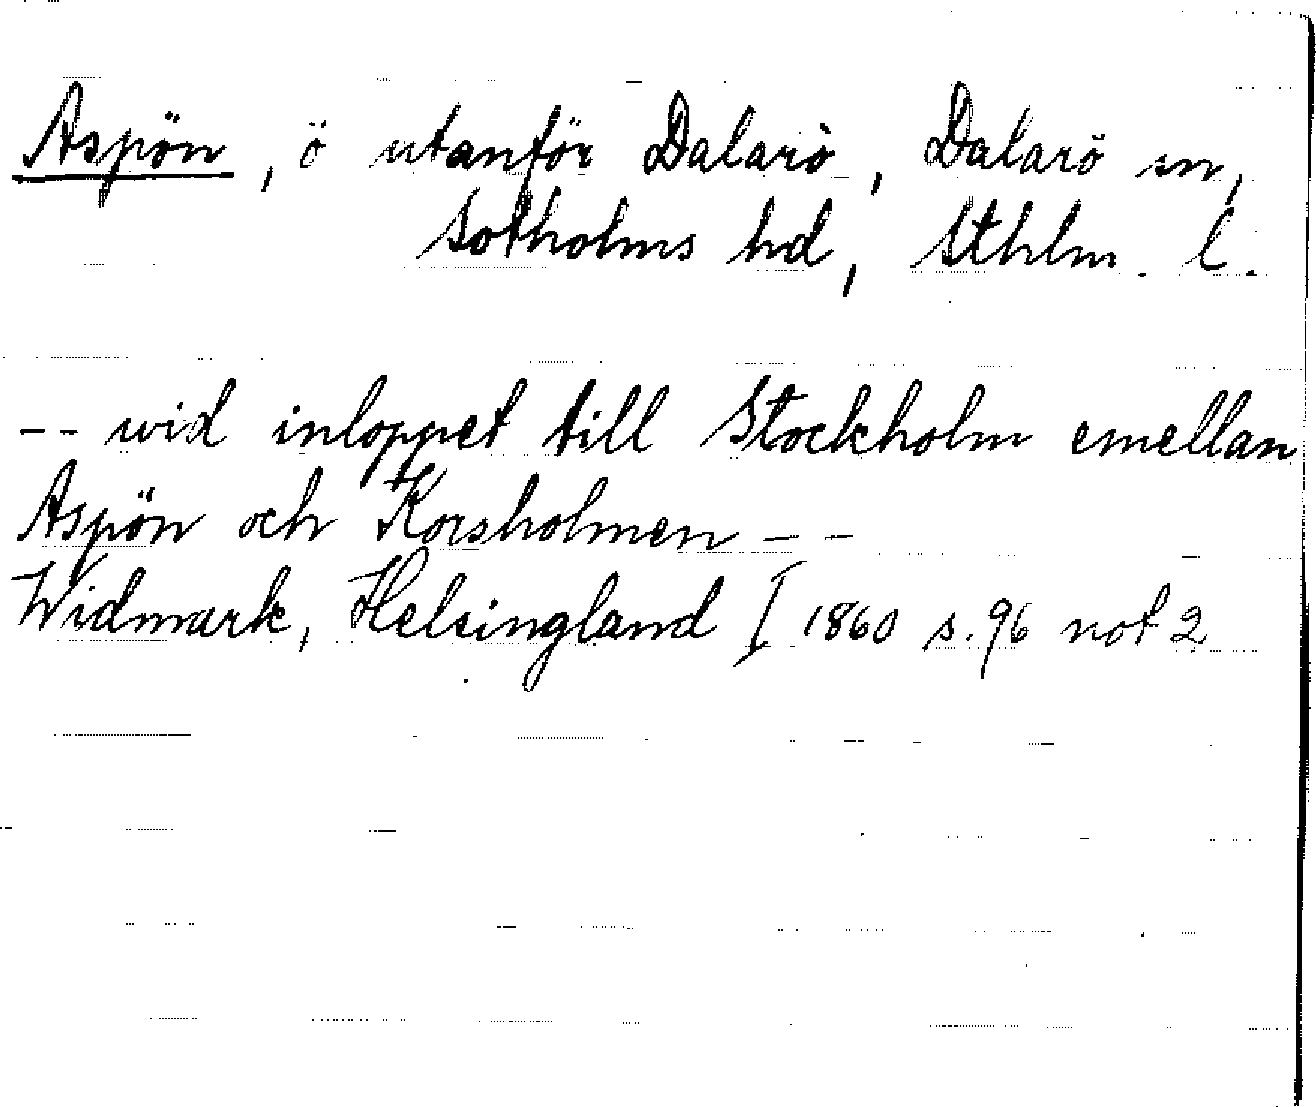 Aspön, ö utanför Dalarö, Dalarö sn,
Sotholms hd, Sthlm. l.
-- wid inloppet till Stockholm emellan
Aspön och Korsholmen --
Widmark, Helsingland I 1860 s. 96 not 2